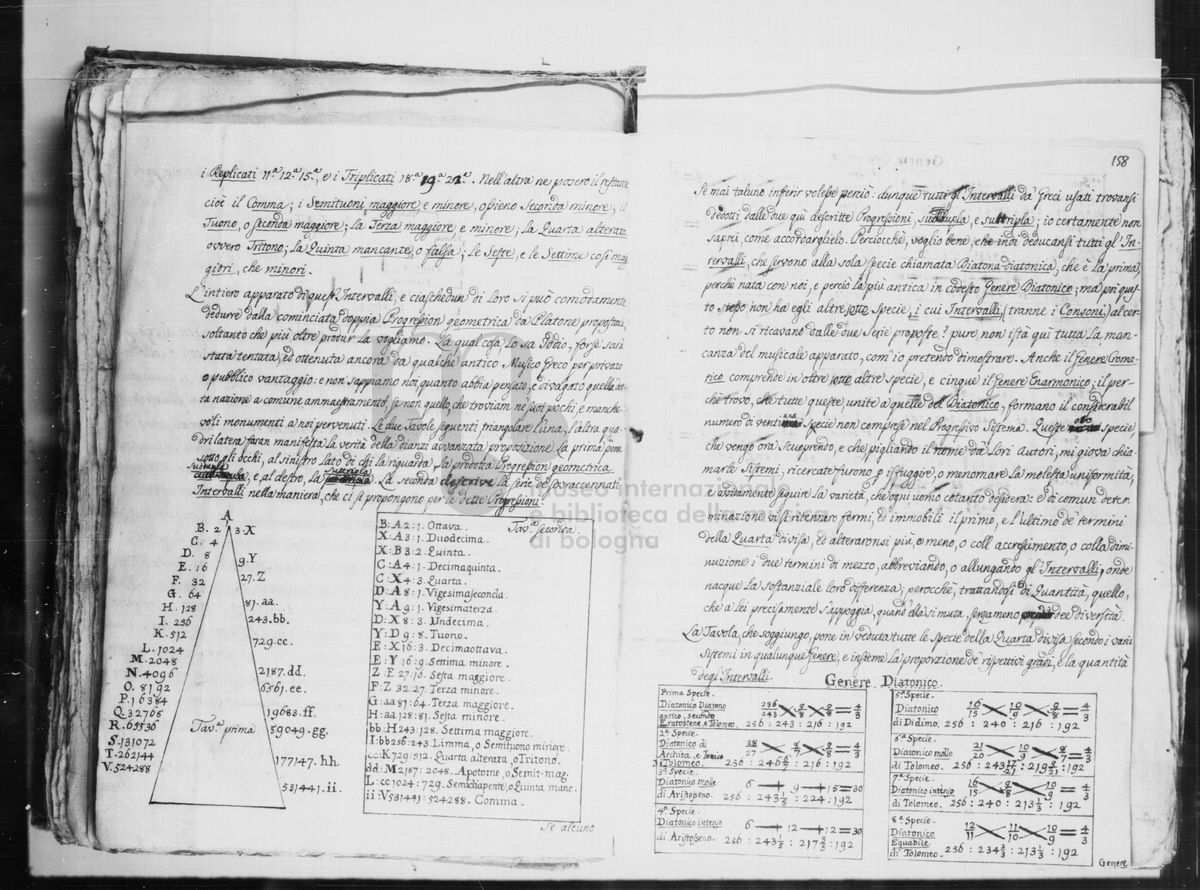 i Replicati 11.ª 12.ª 15.ª, e i Triplicati 18.ª 19.ª 22.ª. Nell'altra ne posero il restante
cioè il Comma; i Semituoni maggiore, e minore, ossieno Seconda minore; il
Tuono, o seconda maggiore; la Terza maggiore, e minore; la Quarta alterata
ovvero Tritono; la Quinta mancante, o falsa; le Seste, e le Settime così mag
giori, che minori.
L'intiero apparato di quest'Intervalli, e ciaschedun di loro si può comodamente
dedurre dalla cominciata doppia Progression geometrica da Platone propostaci,
soltanto che più oltre produr la vogliamo. La qual cosa, lo sa Iddio, forse sarà
stata tentata, ed ottenuta ancora da qualche antico Musico Greco per privato
o pubblico vantaggio: e non sappiamo noi quanto abbia pensato, e divagato quella dot
ta nazione a comune ammaestramento, se non quello, che troviam ne' suoi pochi, e manche-
voli monumenti a noi pervenuti. Le due Tavole seguenti triangolare l'una, l'altra qua-
drilatera faran manifesta la verità della dianzi avvanzata proposizione. La prima pone
sotto gli occhi, al sinistro lato di chi la riguarda, la prodotta Progression geometrica
suddupla, e al destro, la suttripla. La seconda descrive la serie de' sovraccennati
Intervalli nella maniera, che ci si propongono per le dette Progressioni.
A
B. 2
3. X
C. 4
D. 8
9. Y
E. 16
27. Z
F. 32
G. 64
81. aa.
H. 128
243. bb.
I. 256
K. 512
729. cc.
L. 1024
M. 2048
2187. dd.
N. 4096
6561. ee.
O. 8192
P. 16384
19683. ff.
Q. 32768
R. 65536
59049. gg.
S. 131072
T. 262144
177147. hh.
V. 524288
531441. ii.
Tav.ª prima
Tav.ª seconda
B: A 2: 1. Ottava.
X: A 3: 1. Duodecima.
X: B 3: 2. Quinta.
C: A 4: 1. Decimaquinta.
C: X 4: 3. Quarta.
D: A 8: 1. Vigesimaseconda.
Y: A 9: 1. Vigesimaterza.
D: X 8: 3. Undecima.
Y: D 9: 8. Tuono.
E: X 16: 3. Decimaottava.
E: Y 16: 9. Settima minore.
Z: E 27: 16. Sesta maggiore.
F: Z 32: 27. Terza minore.
G: aa 81: 64. Terza maggiore.
H: aa 128: 81. Sesta minore.
bb: H 243: 128. Settima maggiore.
I: bb 256: 243. Limma, o Semituono minore.
cc: K 729: 512. Quarta alterata, o Tritono.
dd: M 2187: 2048. Apotome, o Semit-mag.
L: cc 1024: 729. Semidiapente, o Quinta manc.
ii: V 531441: 524288. Comma.
Se alcuno
158
Se mai taluno inferir volesse perciò: dunque tutti gl'Intervalli da' Greci usati trovansi
dedotti dalle due quì descritte Progressioni, suddupla, e suttripla; io certamente non
saprei, come accordarglielo. Perciocchè, voglio bene, che indi deducansi tutti gl'In-
tervalli, che servono alla sola specie chiamata Diatona-diatonica, che è la prima,
perchè nata con noi, e perciò la più antica in codesto Genere Diatonico; ma poi ques-
to stesso non ha egli altre sette Specie, i cui Intervalli, (tranne i Consoni) al cer-
to non si ricavano dalle due Serie proposte? pure non istà quì tutta la man-
canza del musicale apparato, com'io pretendo dimostrare. Anche il Genere Croma-
tico comprende in oltre sette altre specie, e cinque il Genere Enarmonico; il per-
chè trovo, che tutte queste, unite a quelle del Diatonico, formano il considerabil
numero di venti specie non comprese nel Progressivo Sistema. Queste specie
che vengo ora scuoprendo, e che pigliando il nome da' lori autori, mi giova chia-
marle Sistemi, ricercate furono p isfuggire, o menomare la molesta uniformità,
e avidamente seguire la varietà, che ogni uomo cotanto desidera: e di comun deter-
minazione vi si ritennero fermi, ed immobili il primo, e l'ultimo de' termini
della Quarta divisa, ed alteraronsi più, o meno, o coll'accrescimento, o colla dimi-
nuzione i due termini di mezzo, abbreviando, o allungando gl'Intervalli, onde
nacque la sostanziale loro differenza; perocchè, trattandosi di Quantità, quello,
che a lei precisamente s'appoggia, quand'ella si muta, senzameno dee diversità.
La Tavola, che soggiungo, pone in veduta tutte le Specie della Quarta divisa secondo i varii
Sistemi in qualunque Genere, e insieme la proporzione de' rispettivi gradi, e la quantità
degl'Intervalli.
Genere Diatonico.
Prima Specie.
Diatonico Diatono
antico, secondo
Eratostene e Tolomeo.
256/243 9/8 9/8 = 4/3
256 : 243 : 216 : 192
2ª Specie.
Diatonico di
Archita, e Tonico
di Tolomeo.
28/27 8/7 9/8 = 4/3
256 : 246 6/7 : 216 : 192
3ª Specie.
Diatonico molle
di Aristosseno.
6 9 15 = 30
256 : 243 1/5 : 224 : 192
4ª Specie.
Diatonico intenso
di Aristosseno.
6 12 12 = 30
256 : 243 1/5 : 217 3/5 : 192
5ª Specie.
Diatonico
di Didimo.
16/15 10/9 9/8 = 4/3
256 : 240 : 216 : 192
6ª Specie.
Diatonico molle
di Tolomeo.
21/20 10/9 8/7 = 4/3
256 : 243 17/21 : 219 9/21 : 192
7ª Specie.
Diatonico intenso
di Tolomeo.
16/15 9/8 10/9 = 4/3
256 : 240 : 213 1/3 : 192
8ª Specie.
Diatonico
Equabile
di Tolomeo.
12/11 11/10 10/9 = 4/3
256 : 234 2/3 : 213 1/3 : 192
Genere
museo internazionale
e biblioteca della musica
di bologna